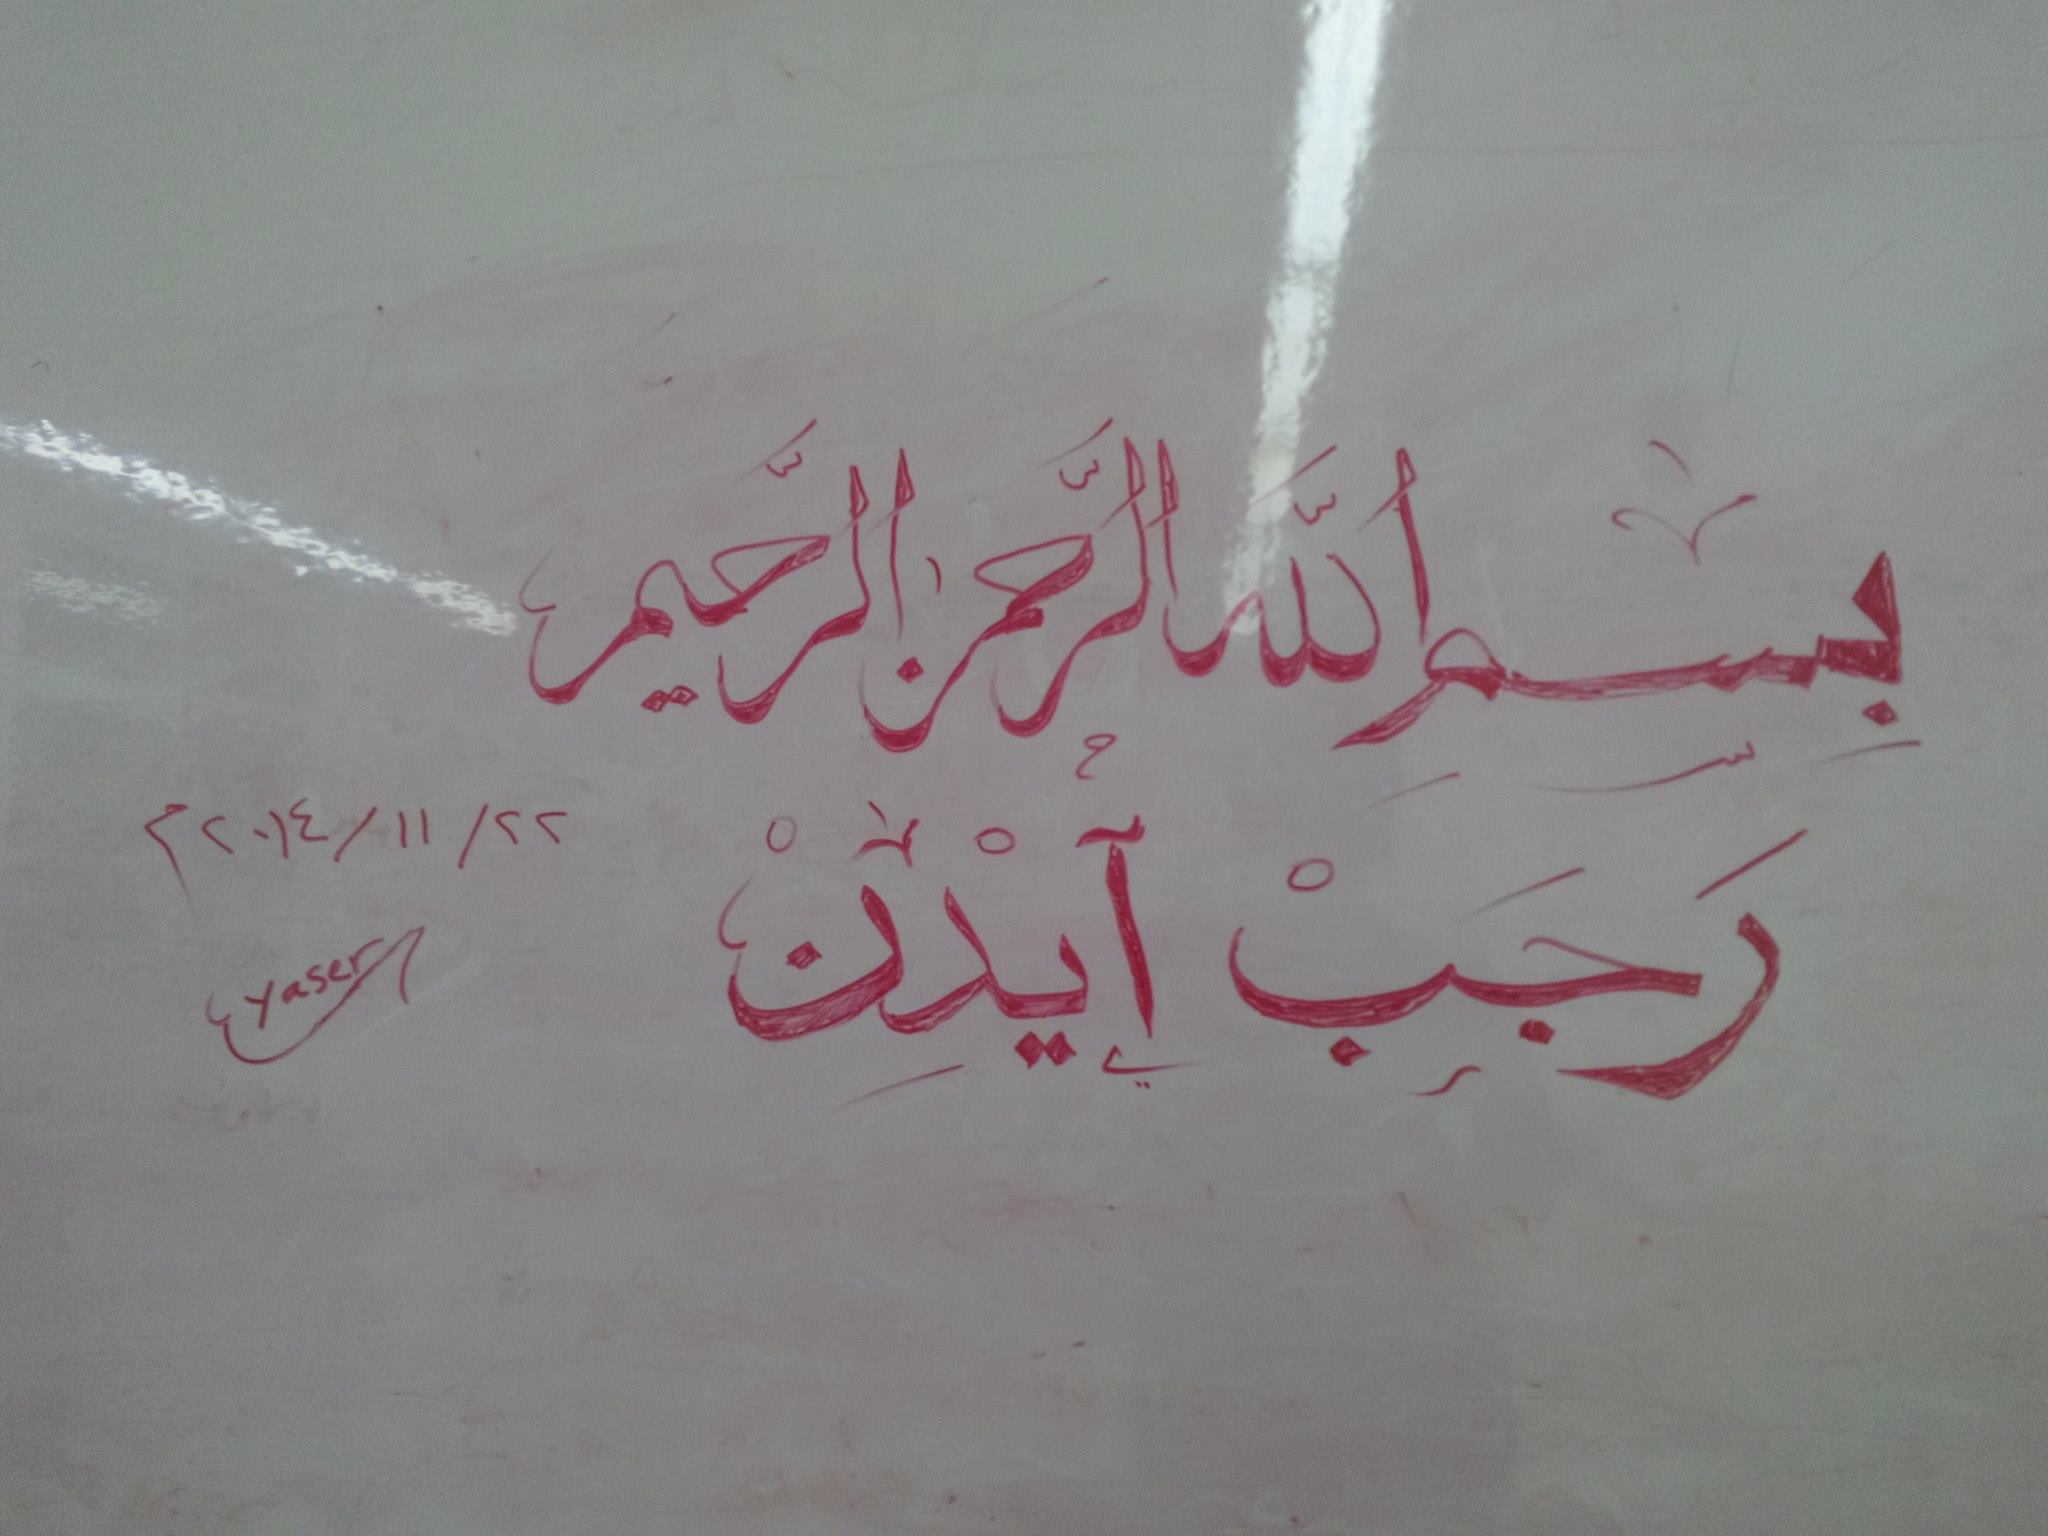 بِسْمِ اللَّهِ الرَّحْمَنِ الرَّحِيمِ
رَجَبْ آيْدِنْ
٢٢/١١/٢٠١٤م
yaser